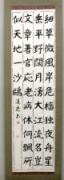 細草微風岸危檣獨夜舟星
垂平野闊月湧大江流名豈
文章著官應老病休飄飄何所
似天地一沙鷗